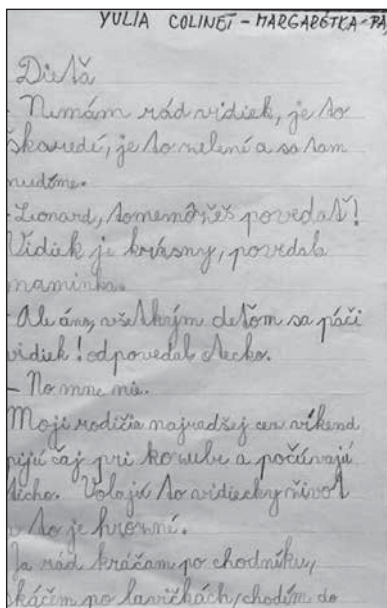 YULIA COLINET - MARGARÉTKA - PA
Dieťa
- Nemám rád vidiek, je to
škaredí, je to zelení a sa tam
nudíme.
- Leonard, to nemôžeš povedať!
Vidiek je krásny, povedala
maminka.
- Ale áno, všetkým deťom sa páči
vidiek! odpovedal otecko.
- No mne nie.
Moji rodičia najradšej cez víkend
pijú čaj pri kozube a počúvajú
ticho. Volajú to vidiecky život
to je hrozné.
Ja rád kráčam po chodníku,
skáčem po lavičkách, chodím do